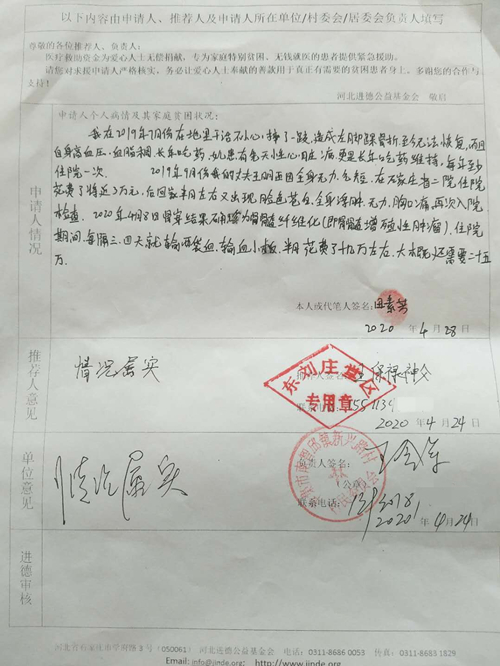 以下内容由申请人、推荐人及申请人所在单位/村委会/居委会负责人填写
尊敬的各位推荐人、负责人:
医疗救助资金为爱心人士无偿捐献,专为家庭特别贫困、无钱就医的患者提供紧急援助。
请您对求援申请人严格核实,务必让爱心人士奉献的善款用于真正有需要的贫困患者身上。多谢您的合作与
支持!
河北进德公益基金会 敬启
申请人情况
申请人个人病情及其家庭贫困状况:
我在2019年7月份在地里干活不小心,摔了一跤,造成左脚踝骨折,至今无法恢复,而且
自身高血压,血脂稠,长年吃药,女儿患有先天性心脏病,更是长年吃药维持,每年至少
住院一次。 2019年9月份我的丈夫王明因全身无力,气短,在石家庄省二院住院
花费了将近3万元,后回家半月左右又出现脸色苍白,全身浮肿,无力,胸口痛,再次入院
检查。2020年4月8日骨穿结果确诊为骨髓纤维化(即骨髓增殖性肿瘤)。住院
期间,每隔三、四天就输两袋血,输血小板,半月花费了十几万左右,大夫说还需要二十五
万。
本人或代笔人签名:田素芳
2020 年 4 月 28 日
推荐人意见
情况属实
推荐人签名:
东刘庄堂区
专用章
联系电话:
2020 年 4 月 24 日
单位意见
情况属实
负责人签名:
(公章)
联系电话:
2020 年 4 月 24 日
进德审核
河北省石家庄市学府路3号(050061) 河北进德公益基金会 电话:0311-8686 0053 传真:0311-8683 1829
Email: info@jinde.org; http://www.jinde.org